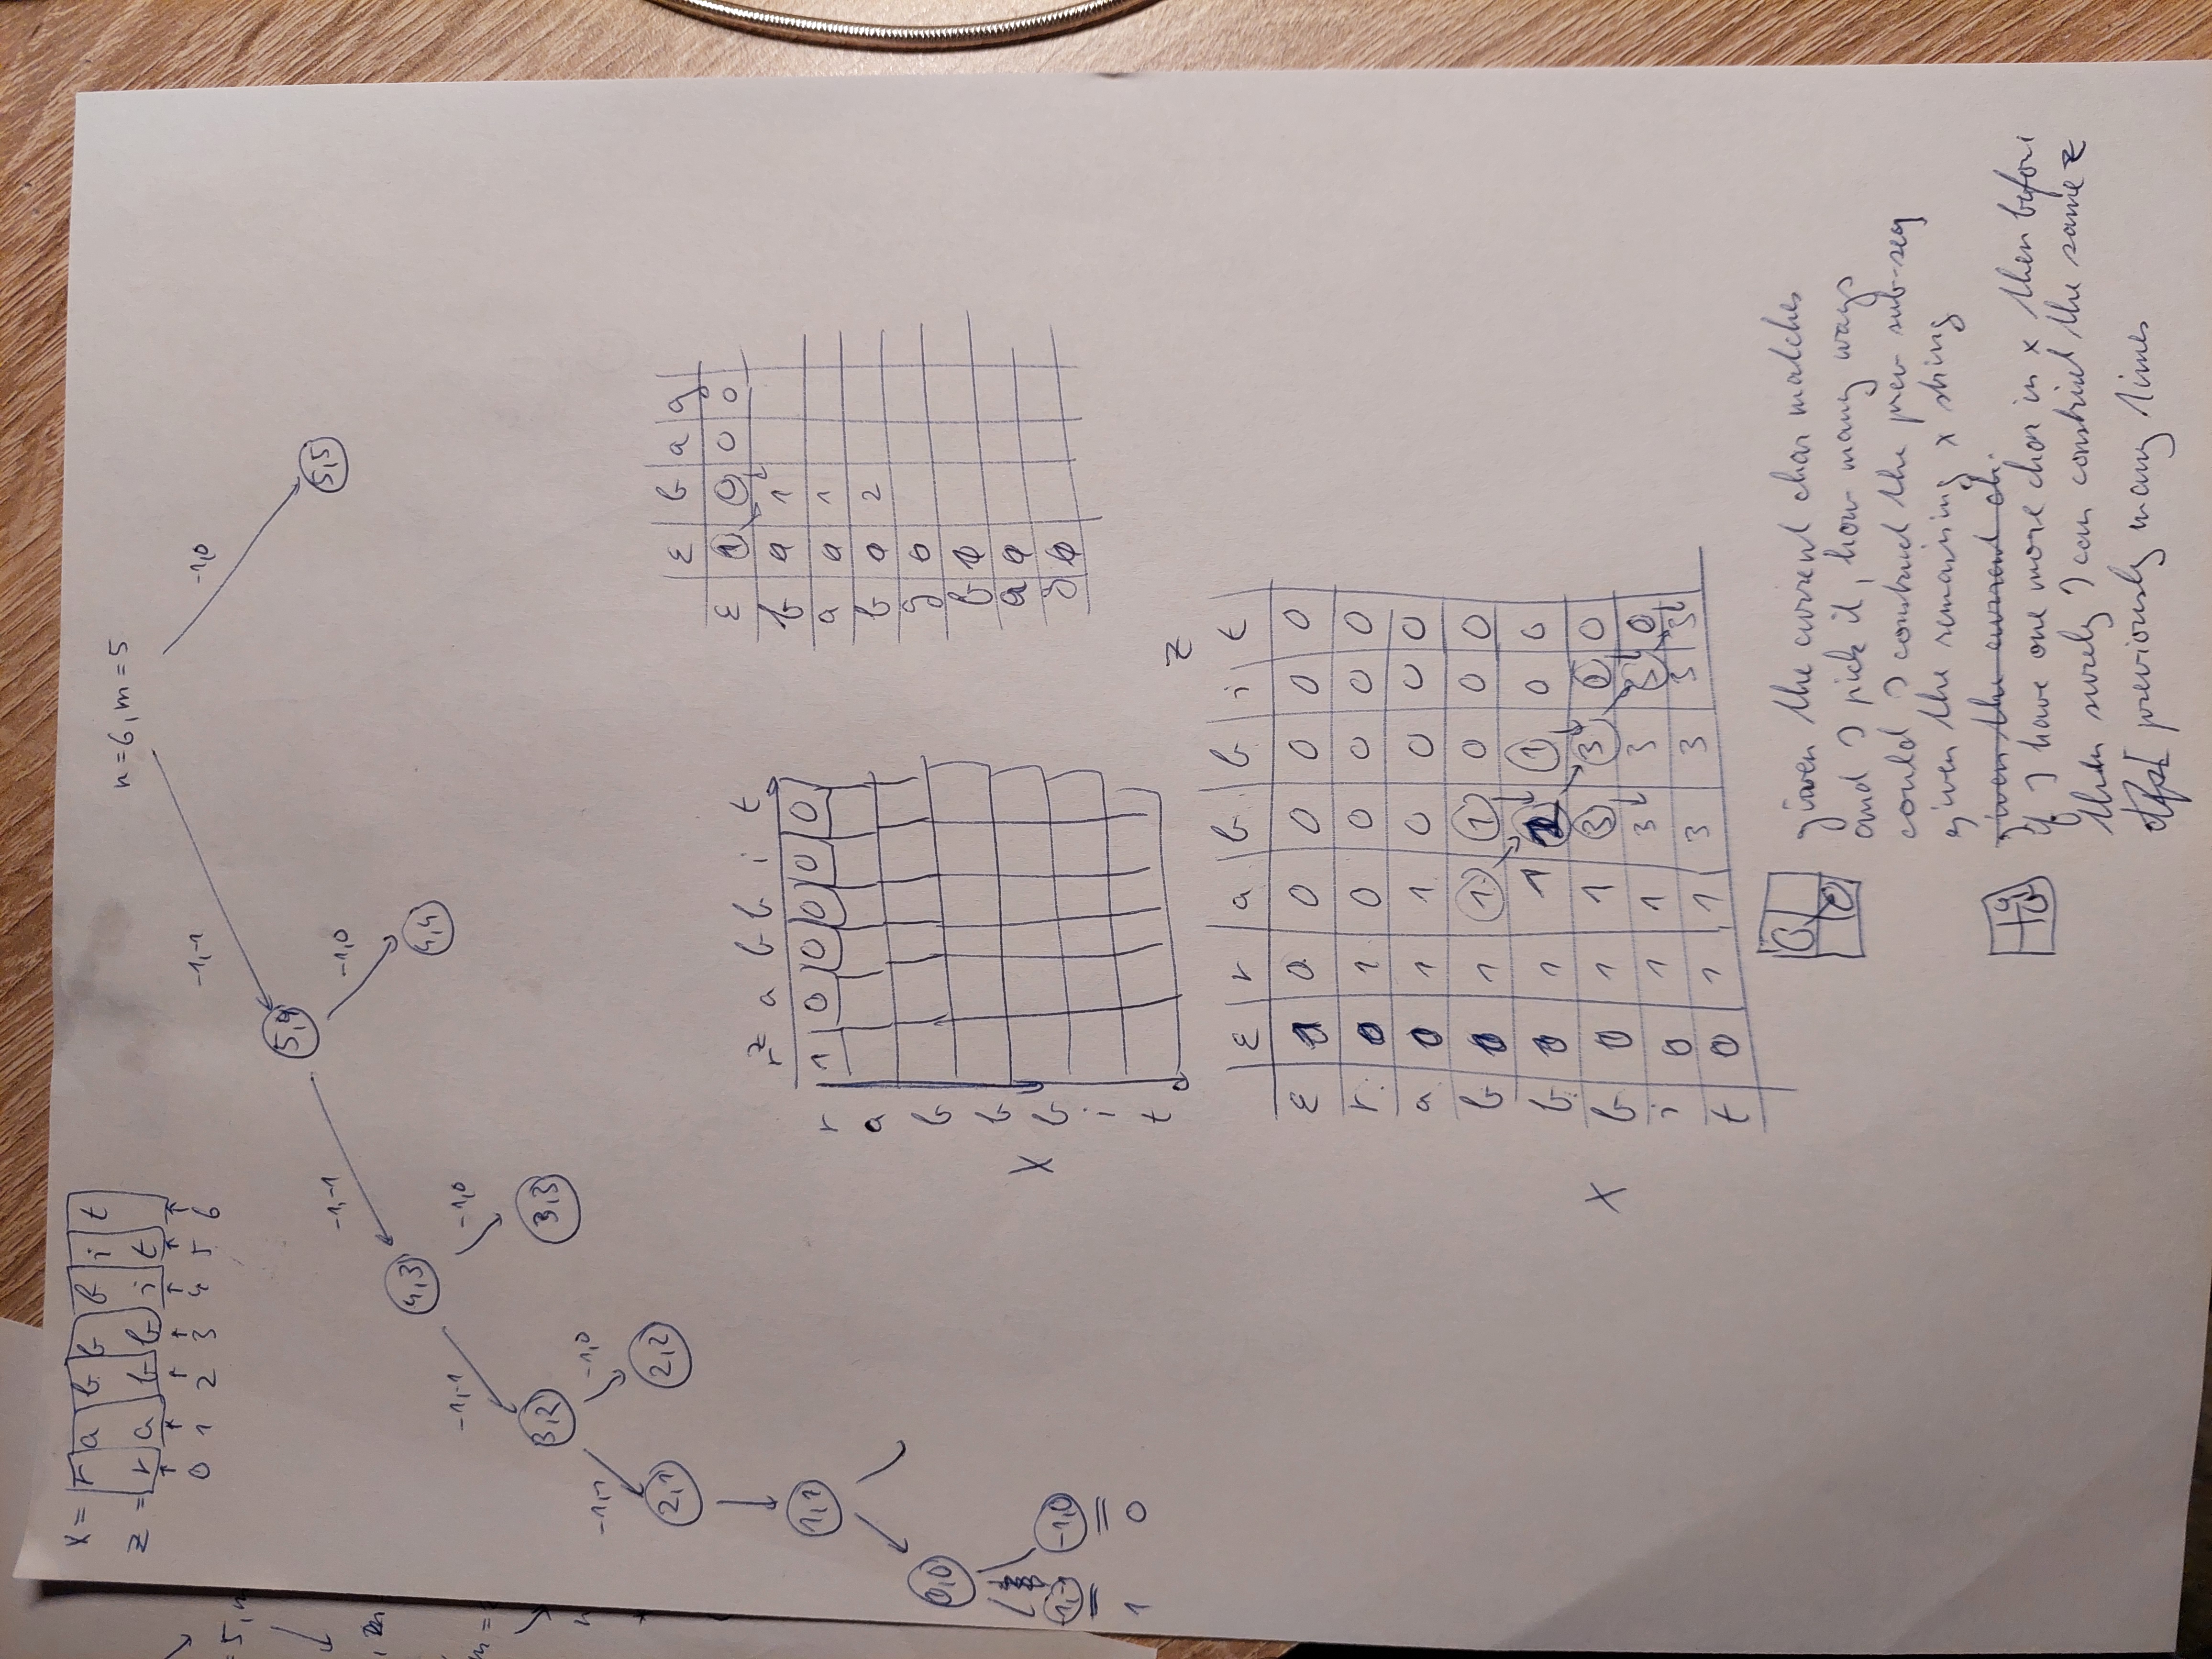 x = r a b b b i t
z = r a b b i t
0 1 2 3 4 5 6
n=6, m=5
-1,-1 -1,0
5,4 5,5
-1,-1 -1,0
4,3 4,4
-1,-1 -1,0
3,2 3,3
-1,-1 -1,0
2,1 2,2
1,1
0,0
-1,0
1 0
z
r a b b i t
r 1 0 0 0 0 0
a
b
b
x b
i
t
ε b a g
ε 1 0 0 0
b 0 1
a 0 1
b 0 2
g 0
b
a 0
g 0
z
ε r a b b i t
ε 1 0 0 0 0 0 0
r 0 1 0 0 0 0 0
a 0 1 1 0 0 0 0
b 0 1 1 1 0 0 0
b 0 1 1 2 1 0 0
x b 0 1 1 3 3 0 0
i 0 1 1 3 3 3 0
t 0 1 1 3 3 3 3
given the current char matches
and I pick it, how many ways
could I construct the prev sub-seq
given the remaining x string
given the current ch.
if I have one more char in x then before
then surely I can construct the same z
previously many times